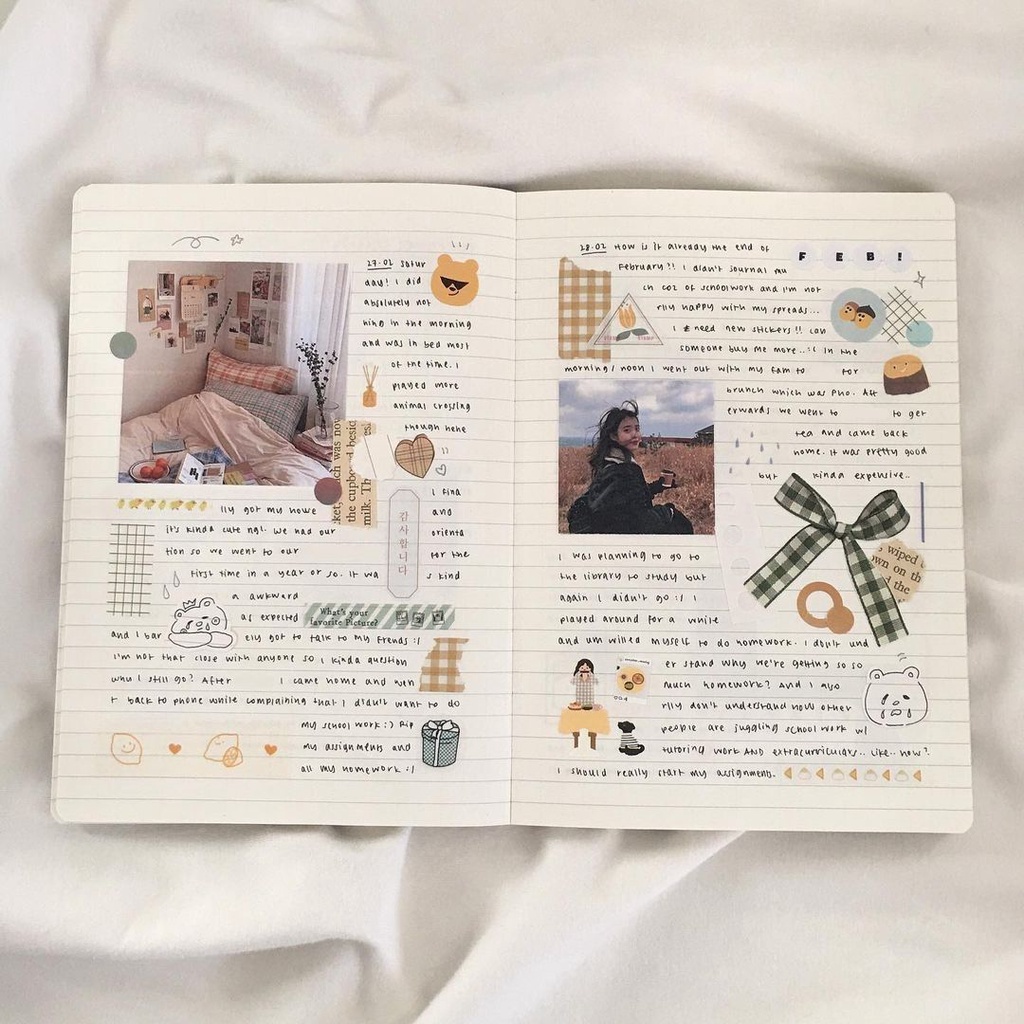 27.02 Satur
day! I did
absolutely not
hing in the morning
and was in bed most
of the time. I
played more
animal crossing
though hehe
ket,
ch was now
the cupbo
d besid
milk. Th
I fina
lly got my howe
and
it's kinda cute ngl. we had our
orienta
tion so we went to our
for the
first time in a year or so. It wa
s kind
a awkward
as expected
감사합니다
What's your
favorite Picture?
and I bar
ely got to talk to my frends :/
I'm not that close with anyone so I kinda question
why I still go? After
I came home and wen
t back to phone while complaining that I didn't want to do
my school work :) Rip
my assignments and
all my homework :/
28.02 How is it already the end of
FEB!
February?!! I didn't journal mu
ch coz of schoolwork and I'm not
rlly happy with my spreads...
I need new stickers!! can
someone buy me more..:( In the
morning/noon I went out with my fam to
for
brunch which was Pho. Aft
erwards we went to
to get
tea and came back
home. It was pretty good
but kinda expensive..
wiped
own on th
the
I was planning to go to
the library to study but
again I didn't go :/ I
played around for a while
and um willed myself to do homework. I don't und
er stand why we're getting so so
much homework? And I also
rlly don't understand how other
people are juggling school work w/
tutoring work AND extracurricular.. like.. how?
I should really start my assignments.